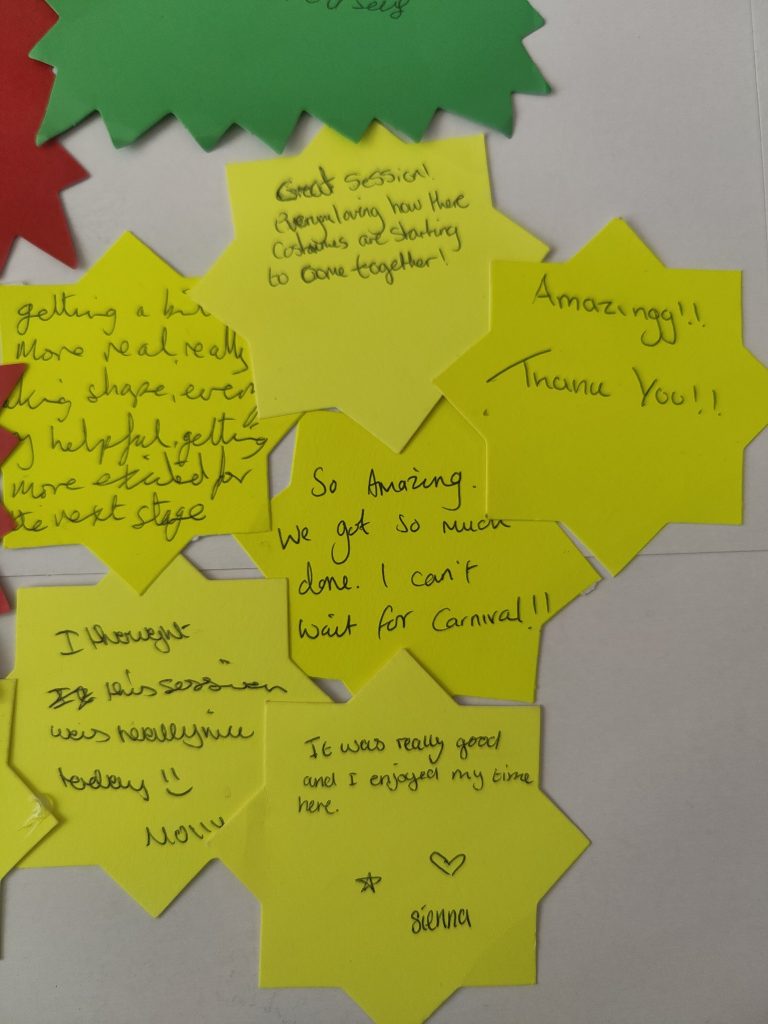 Great Session!
loving how there
Costumes are starting
to come together!
Amazingg!!
Thank You!!
getting a bit
More real, really
shape, every
helpful, getting
more excited for
the next stage
So Amazing.
We got so much
done. I can't
wait for Carnival!!
I thought
this session
was really nice
today!!
Molly
It was really good
and I enjoyed my time
here.
sienna